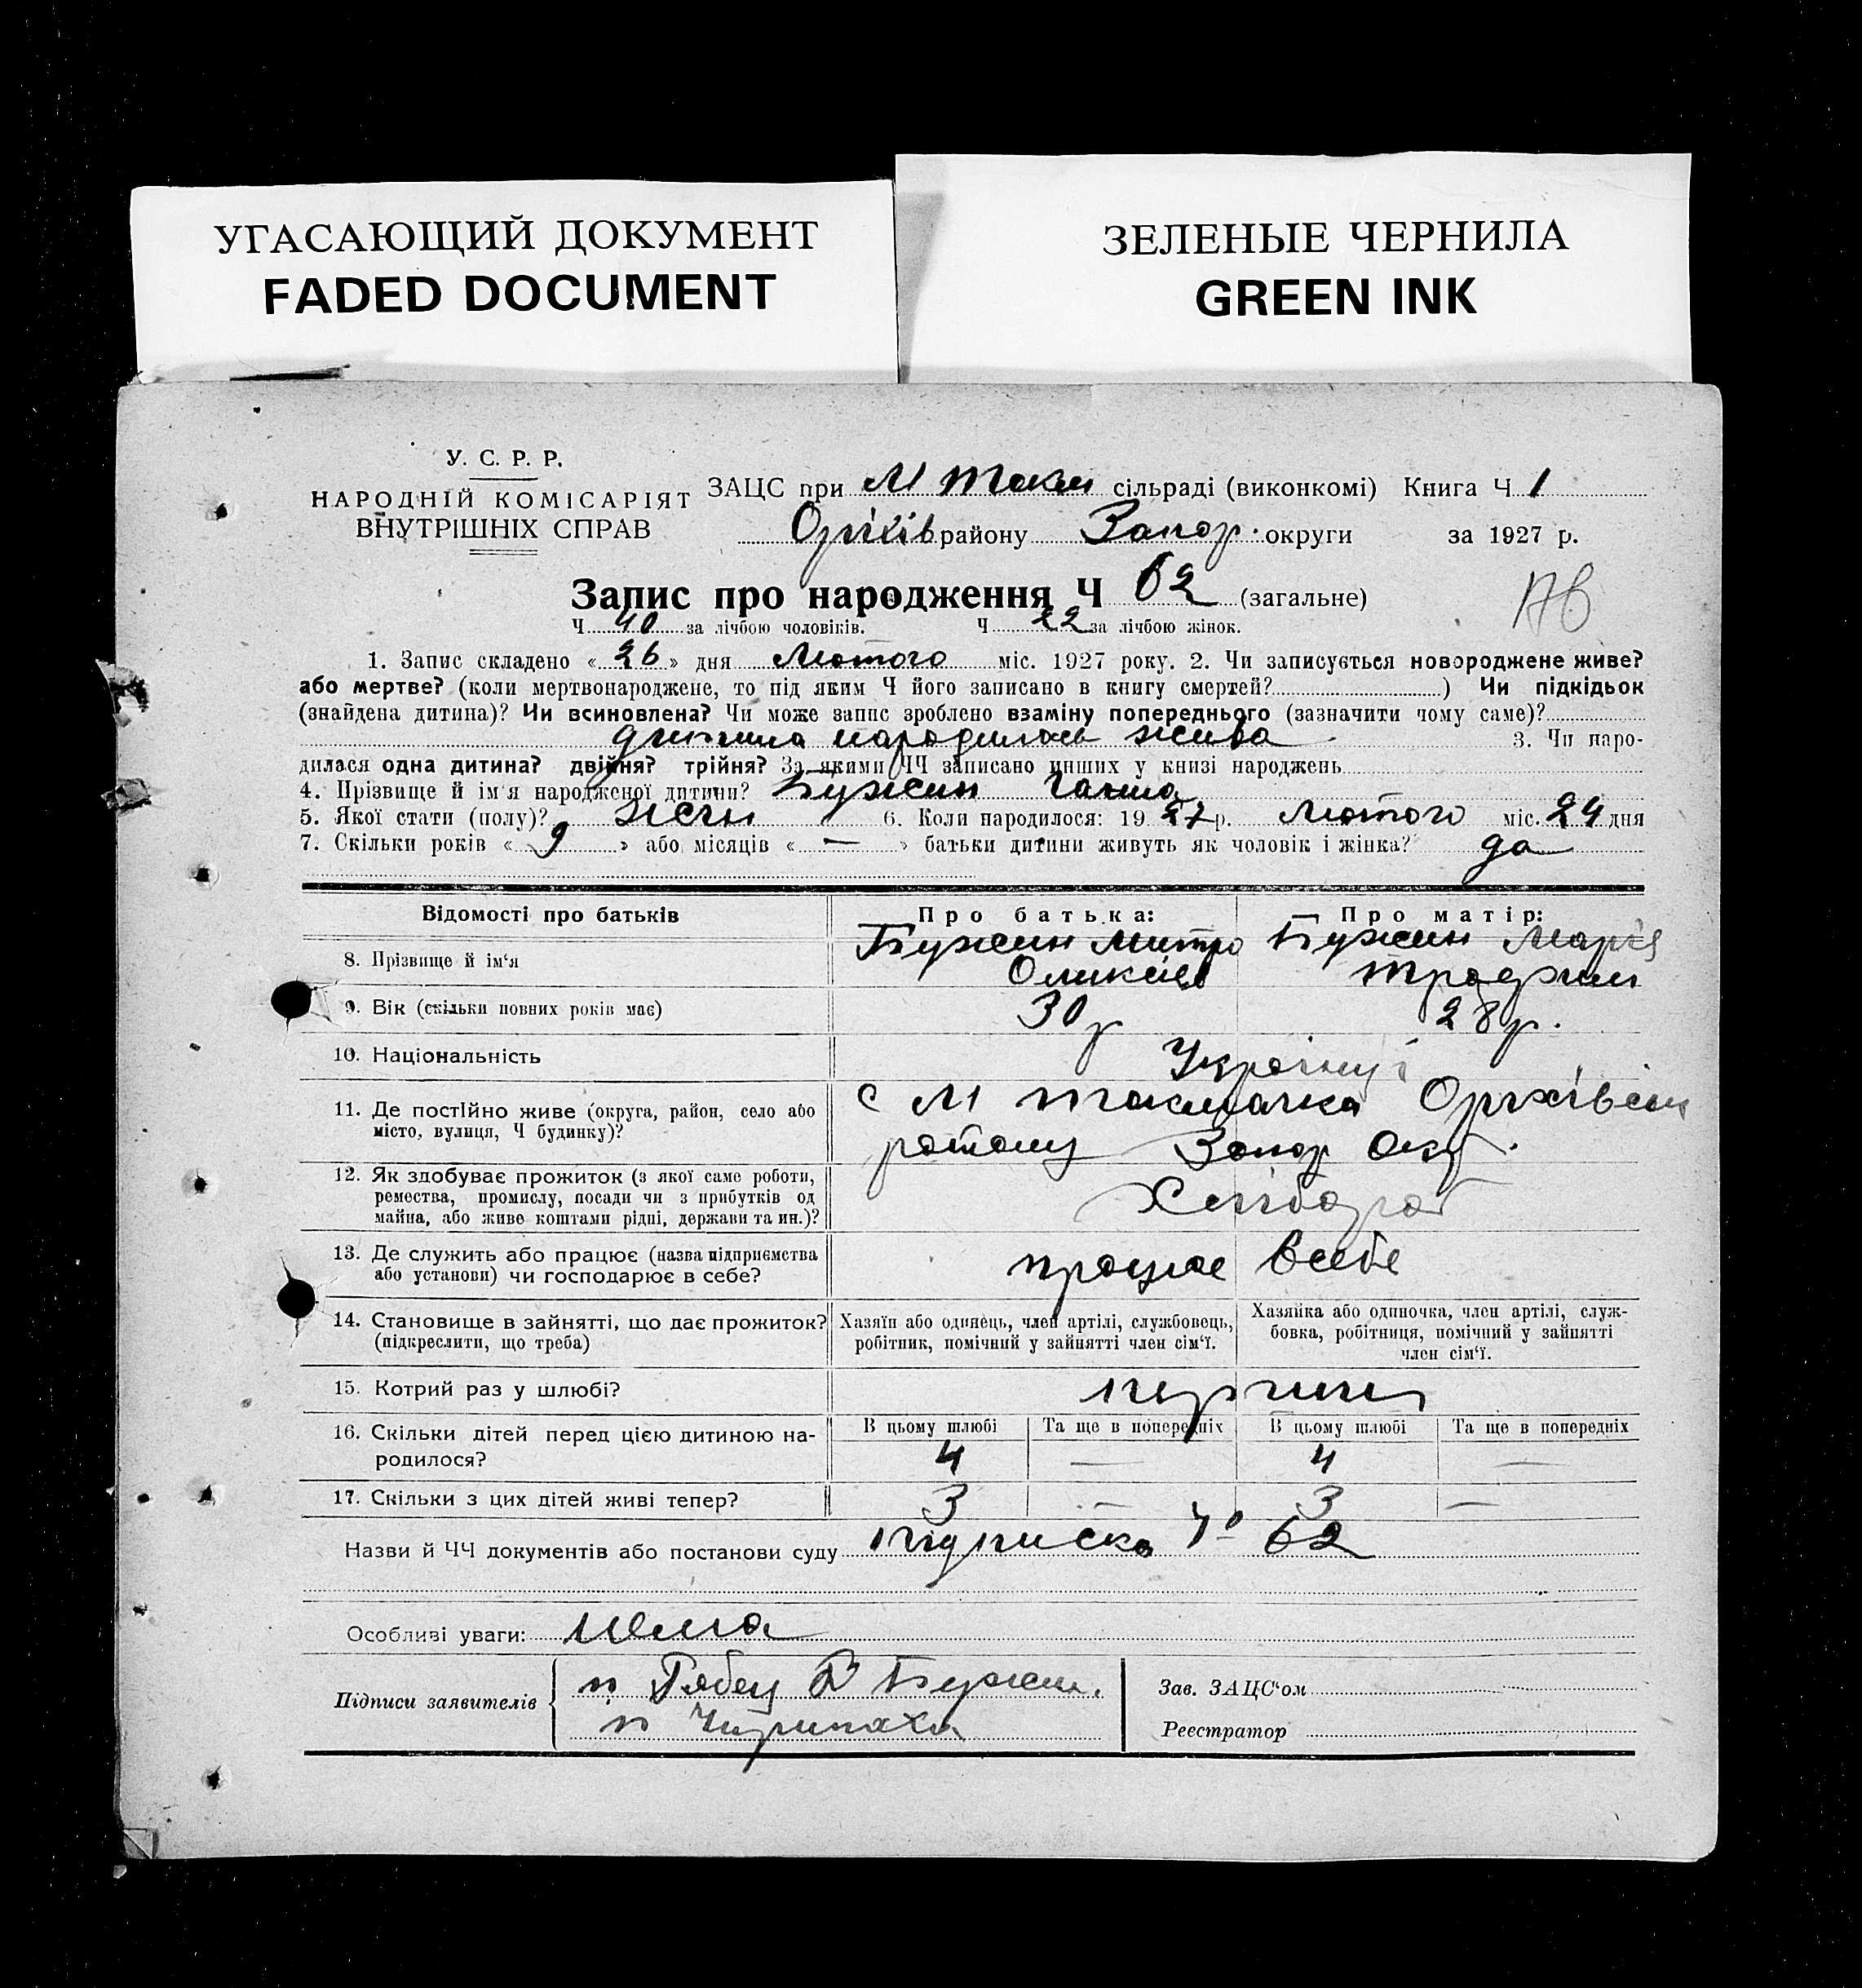 УГАСАЮЩИЙ ДОКУМЕНТ
FADED DOCUMENT
ЗЕЛЕНЫЕ ЧЕРНИЛА
GREEN INK
У. С. Р. Р.
НАРОДНІЙ КОМІСАРІЯТ
ВНУТРІШНІХ СПРАВ
ЗАЦС при М Токм сільраді (виконкомі) Книга Ч 1
Оріхів району Запор. округи за 1927 р.
Запис про народження Ч 62 (загальне)
Ч 40 за лічбою чоловіків. Ч 22 за лічбою жінок.
1. Запис складено « 26 » дня Лютого міс. 1927 року. 2. Чи записується новороджене живе?
або мертве? (коли мертвонароджене, то під яким Ч його записано в книгу смертей?) Чи підкідьок
(знайдена дитина)? Чи всиновлена? Чи може запис зроблено взаміну попереднього (зазначити чому саме)?
дитина народилась жива. 3. Чи наро-
дилася одна дитина? двійня? трійня? За якими ЧЧ записано инших у книзі народжень
4. Прізвище й ім'я народженої дитини? Бужин Ганна
5. Якої стати (полу)? жін 6. Коли народилося: 19 27 р. Лютого міс. 24 дня
7. Скільки років « 9 » або місяців « — » батьки дитини живуть як чоловік і жінка? да
Відомості про батьків
Про батька:
Про матір:
8. Прізвище й ім'я
Бужин Митро
Бужин Марія
9. Вік (скільки повних років має)
30 р
28 р.
10. Національність
11. Де постійно живе (округа, район, село або
місто, вулиця, Ч будинку)?
с М Токмачка
Запор Окр.
12. Як здобуває прожиток (з якої саме роботи,
ремества, промислу, посади чи з прибутків од
майна, або живе коштами рідні, держави та ин.)?
Хлібороб
13. Де служить або працює (назва підприємства
або установи) чи господарює в себе?
працює всебе
14. Становище в зайнятті, що дає прожиток?
(підкреслити, що треба)
Хазяїн або одинець, член артілі, службовець,
робітник, помічний у зайнятті член сім'ї.
Хазяйка або одиночка, член артілі, служ-
бовка, робітниця, помічний у зайнятті
член сім'ї.
15. Котрий раз у шлюбі?
16. Скільки дітей перед цією дитиною на-
родилося?
В цьому шлюбі
Та ще в попередніх
В цьому шлюбі
Та ще в попередніх
4 — 4 —
17. Скільки з цих дітей живі тепер?
3 — 3 —
Назви й ЧЧ документів або постанови суду підписка № 62
Особливі уваги: нема
Підписи заявителів
Бужин.
Зав. ЗАЦС'ом
Реєстратор